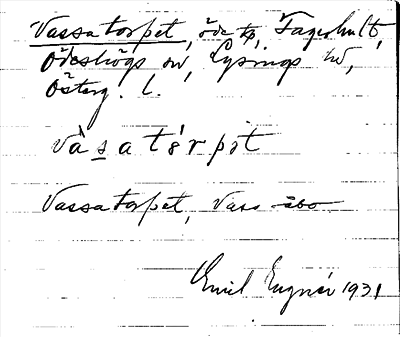 Vassatorpet, öde tp, Fagerhult,
Ödeshögs sn, Lysings hd,
Österg. l.
vàsatórpət
Vassatorpet, Vass
Emil Engnér 1931